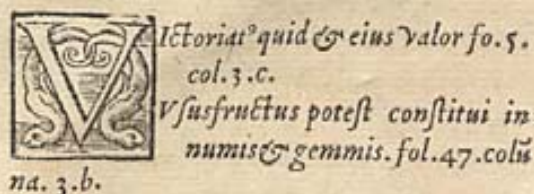 VIctoriatꝰ quid & eius valor fo. 5.
col. 3. c.
Vſusfructus poteſt conſtitui in
numis & gemmis. fol. 47. colū
na. 3. b.